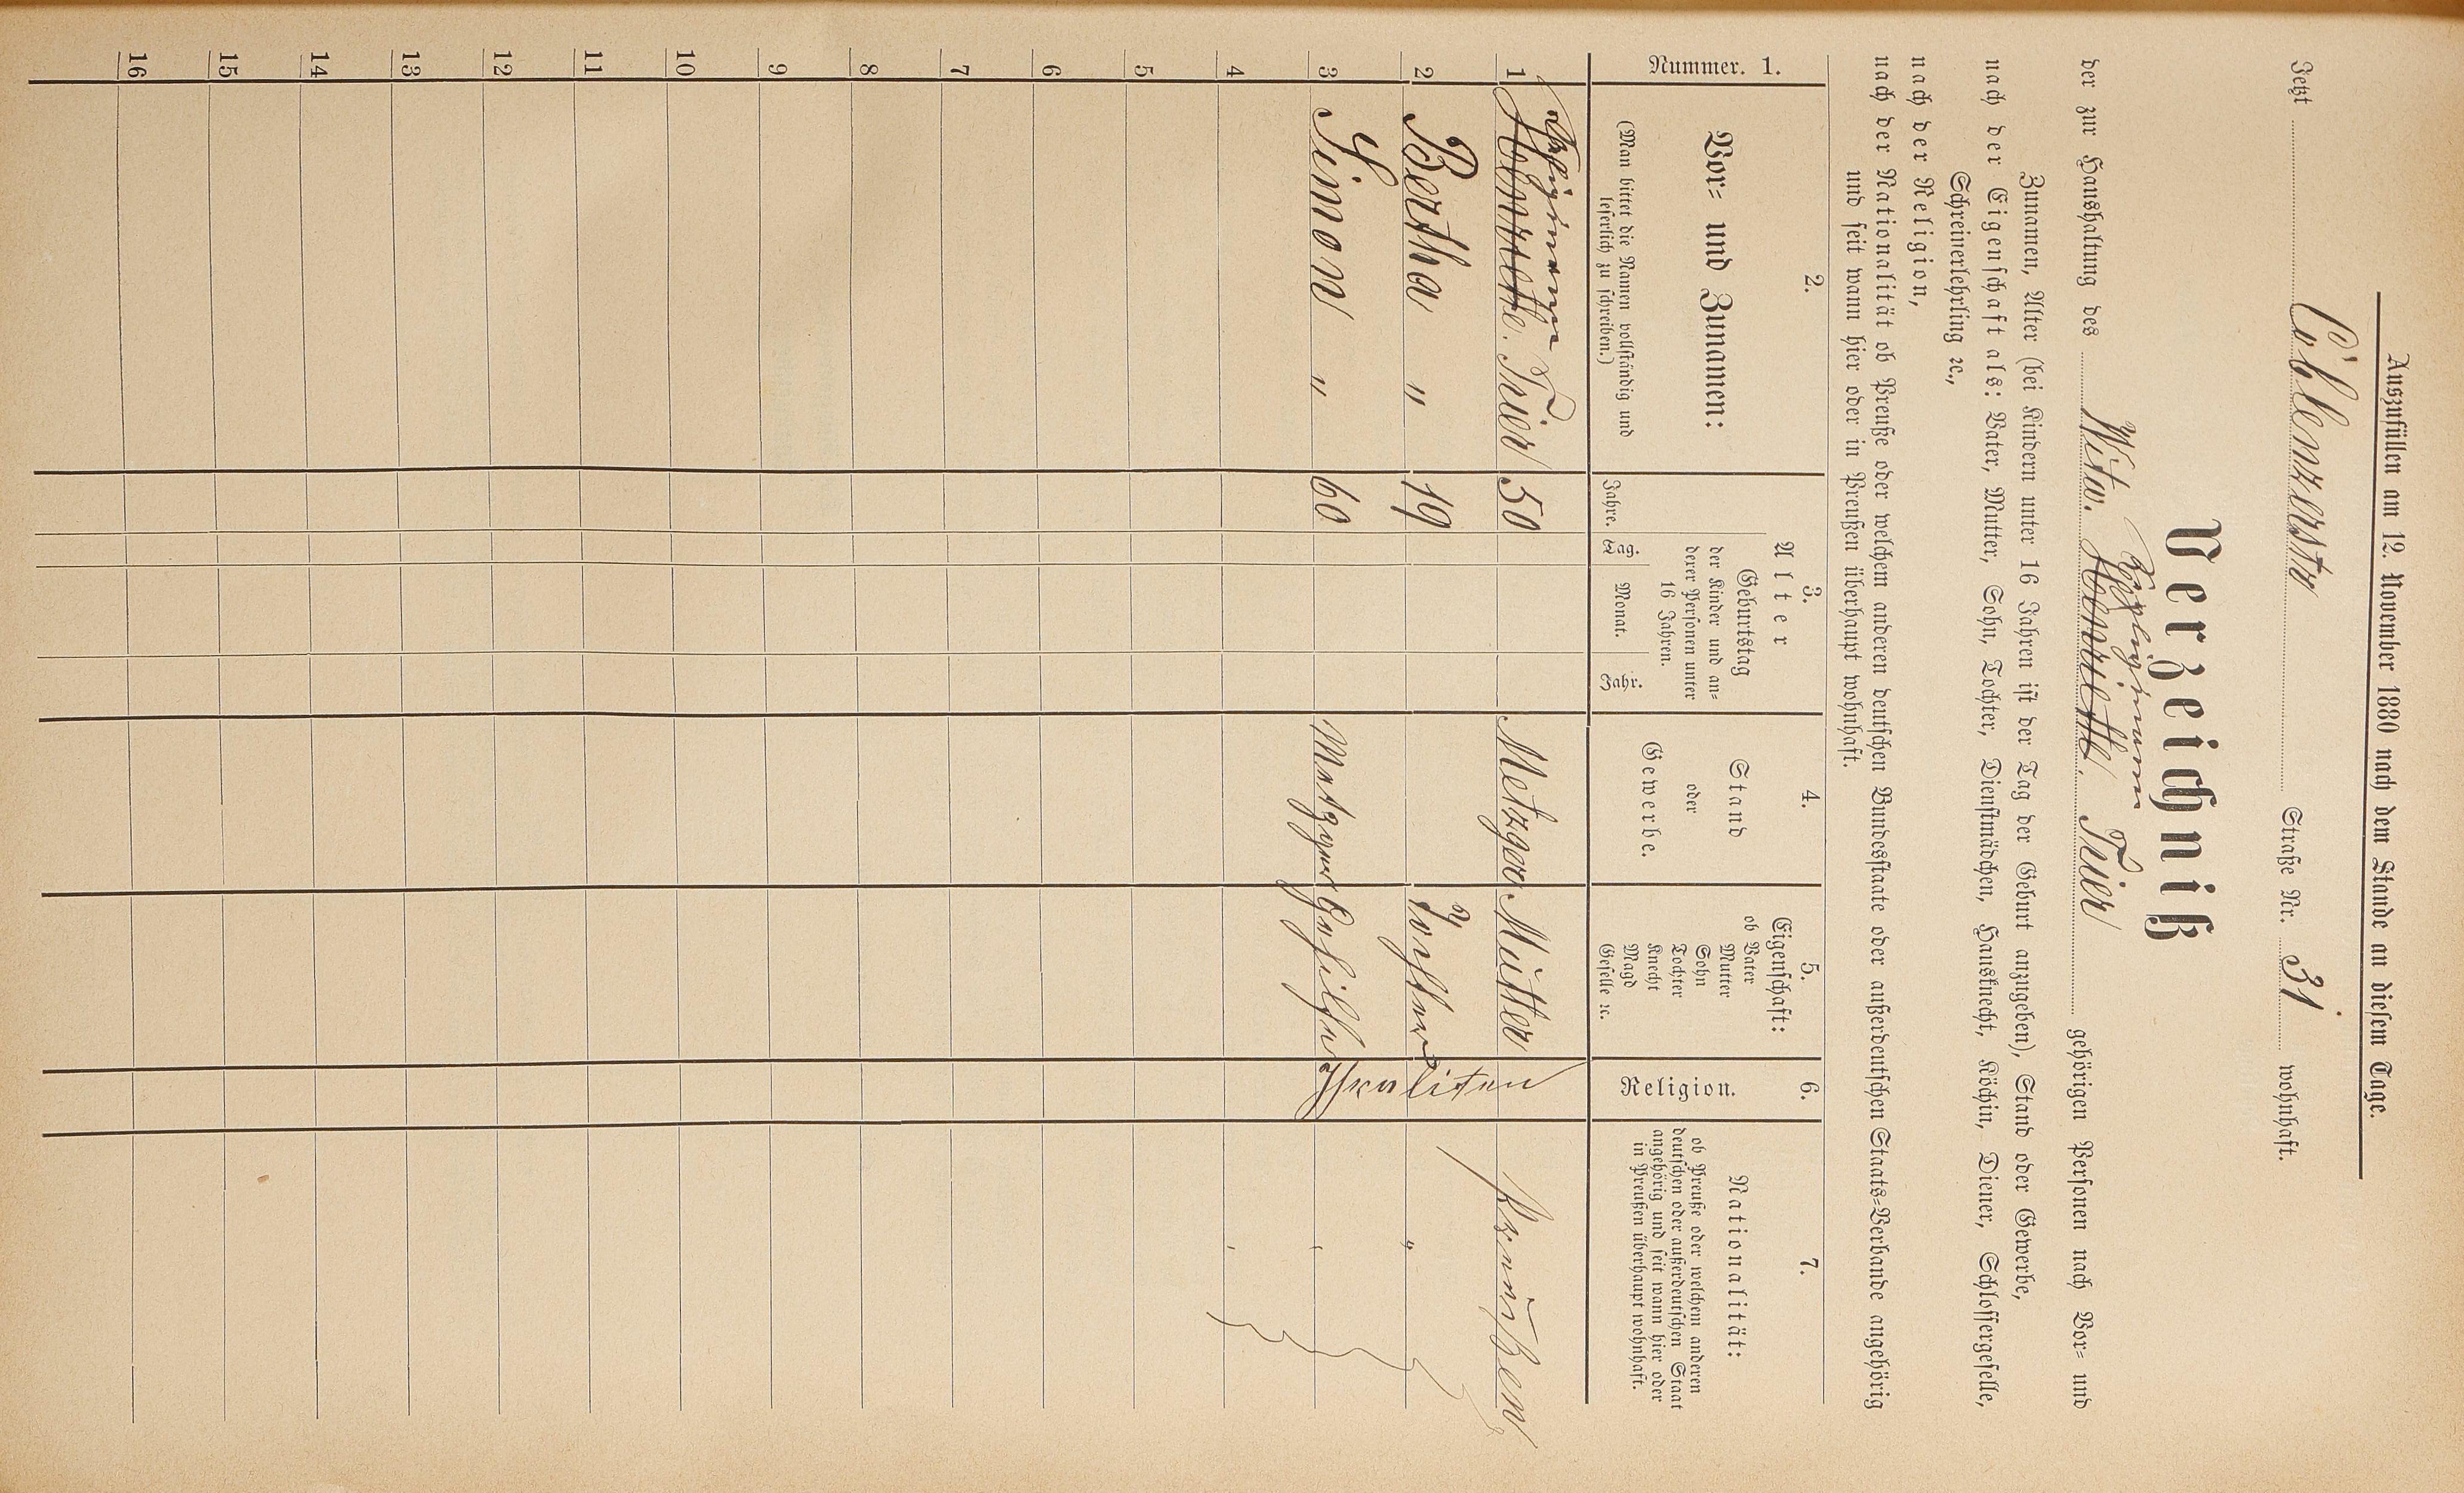 Auszufüllen am 12. November 1880 nach dem Stande an diesem Tage.
Jetzt Coblenzerstr Straße Nr. 31 wohnhaft.
Verzeichniß
der zur Haushaltung des Witw. Trier gehörigen Personen nach Vor- und
Zunamen, Alter (bei Kindern unter 16 Jahren ist der Tag der Geburt anzugeben), Stand oder Gewerbe,
nach der Eigenschaft als: Vater, Mutter, Sohn, Tochter, Dienstmädchen, Hausknecht, Köchin, Diener, Schlossergeselle,
Schreinerlehrling ꝛc.,
nach der Religion,
nach der Nationalität ob Preuße oder welchem anderen deutschen Bundesstaate oder außerdeutschen Staats-Verbande angehörig
und seit wann hier oder in Preußen überhaupt wohnhaft.
Nummer. 1.
2.
Vor- und Zunamen:
(Man bittet die Namen vollständig und
leserlich zu schreiben.)
3.
Alter
Geburtstag
der Kinder und an-
derer Personen unter
16 Jahren.
Jahre. Tag. Monat. Jahr.
4.
Stand
oder
Gewerbe.
5.
Eigenschaft:
ob Vater
Mutter
Sohn
Tochter
Knecht
Magd
Geselle ꝛc.
6.
Religion.
7.
Nationalität:
ob Preuße oder welchem anderen
deutschen oder außerdeutschen Staat
angehörig und seit wann hier oder
in Preußen überhaupt wohnhaft.
1 Trier 50 Metzger Mutter Preußen
2 Bertha " 19 Tochter "
3 Simon " 60 Metzger Gehilfe Israeliten
4
5
6
7
8
9
10
11
12
13
14
15
16